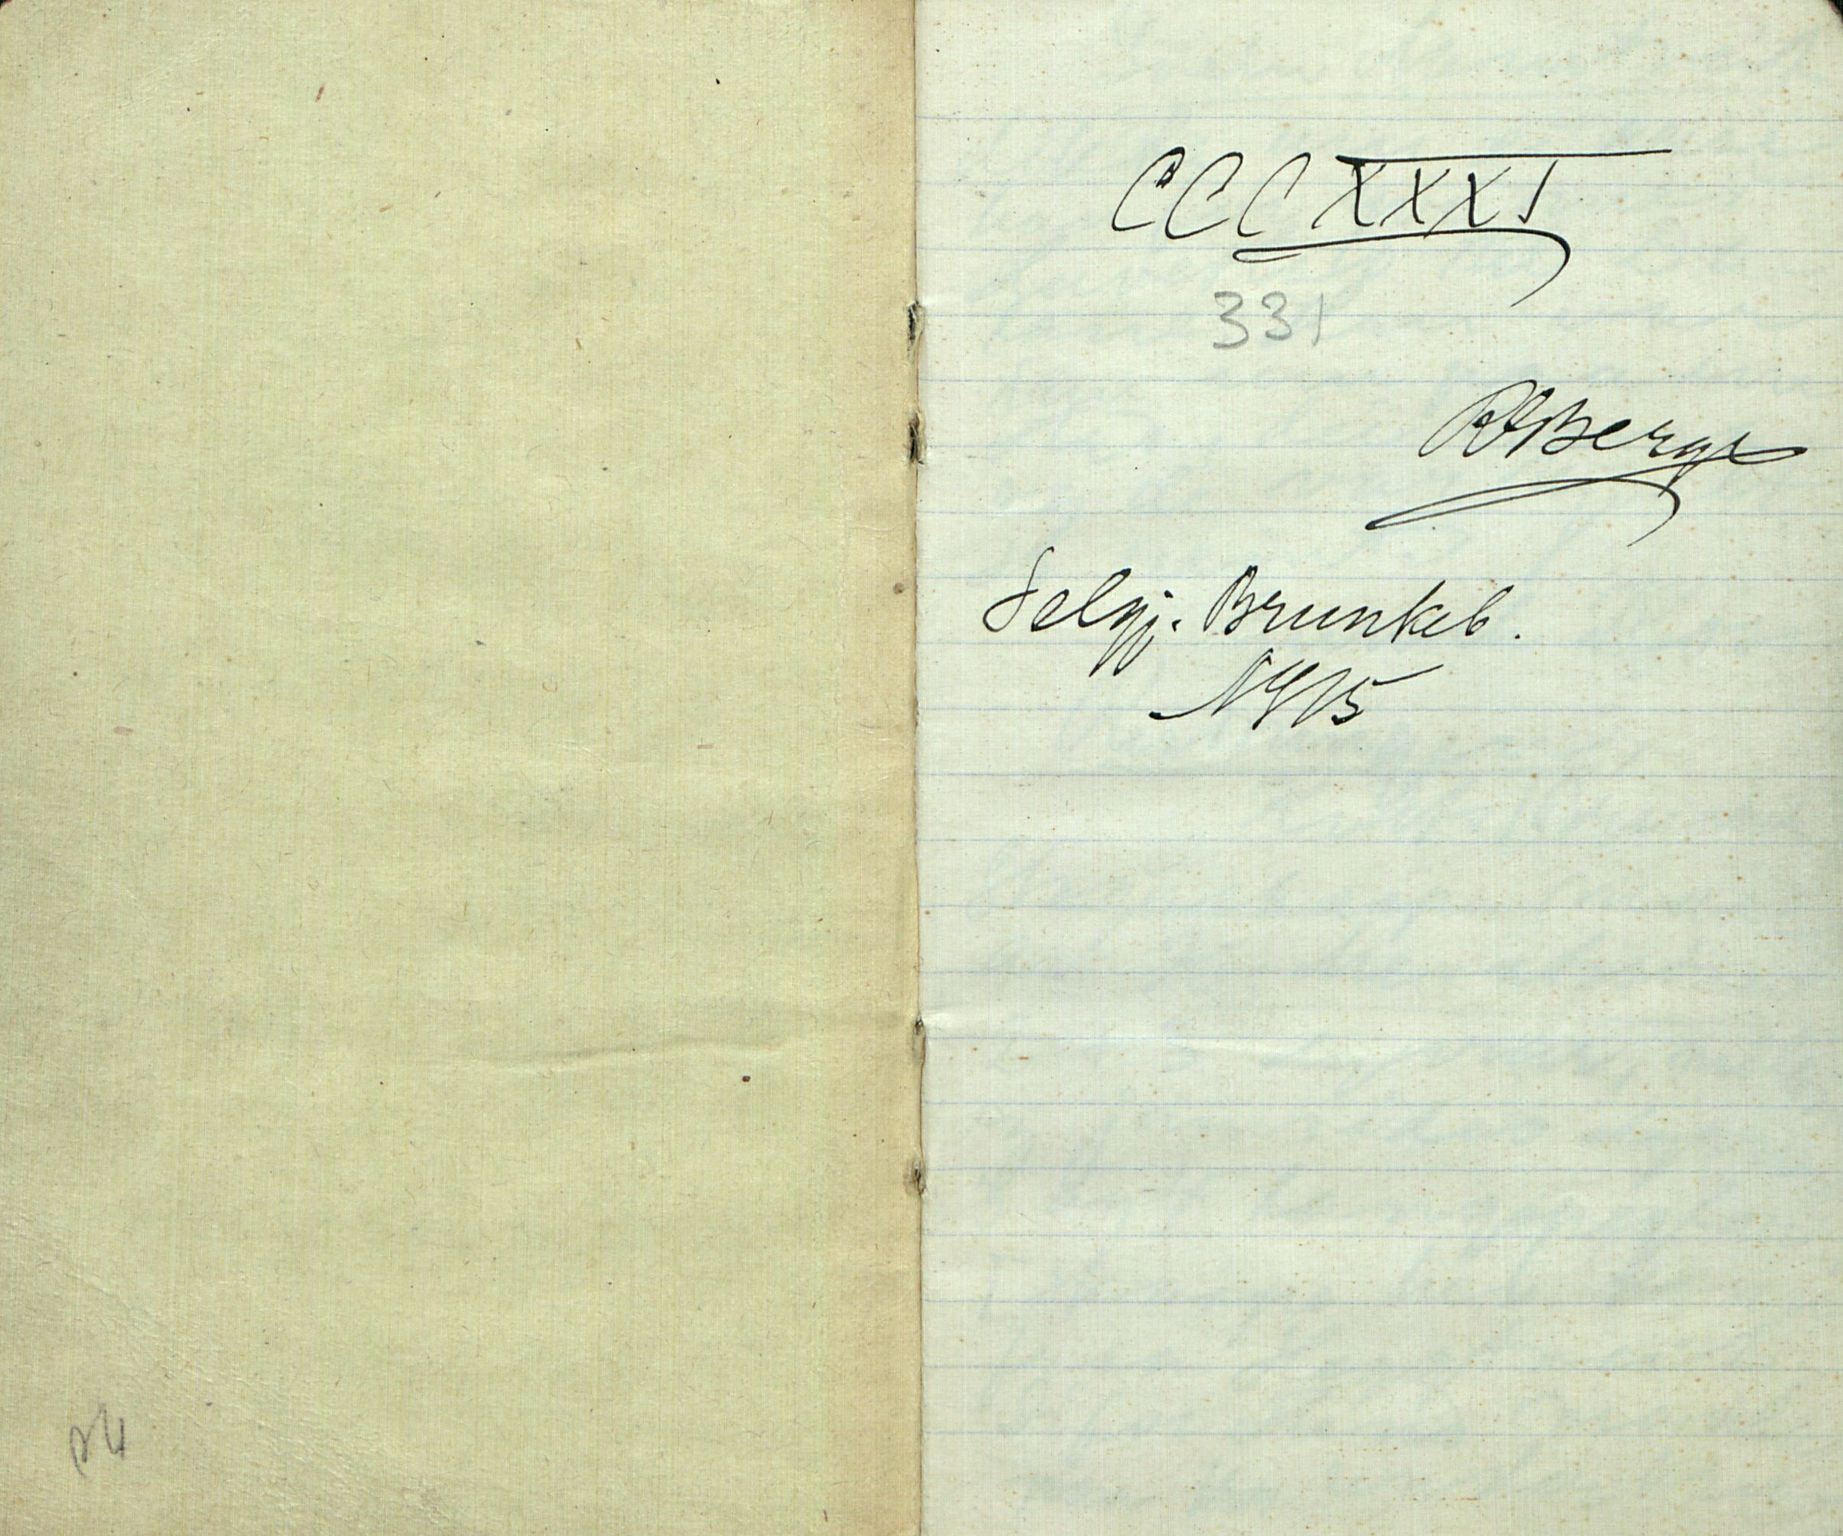 CCCXXXI
331
RBerge
Selgj. Brunkeb.
1915